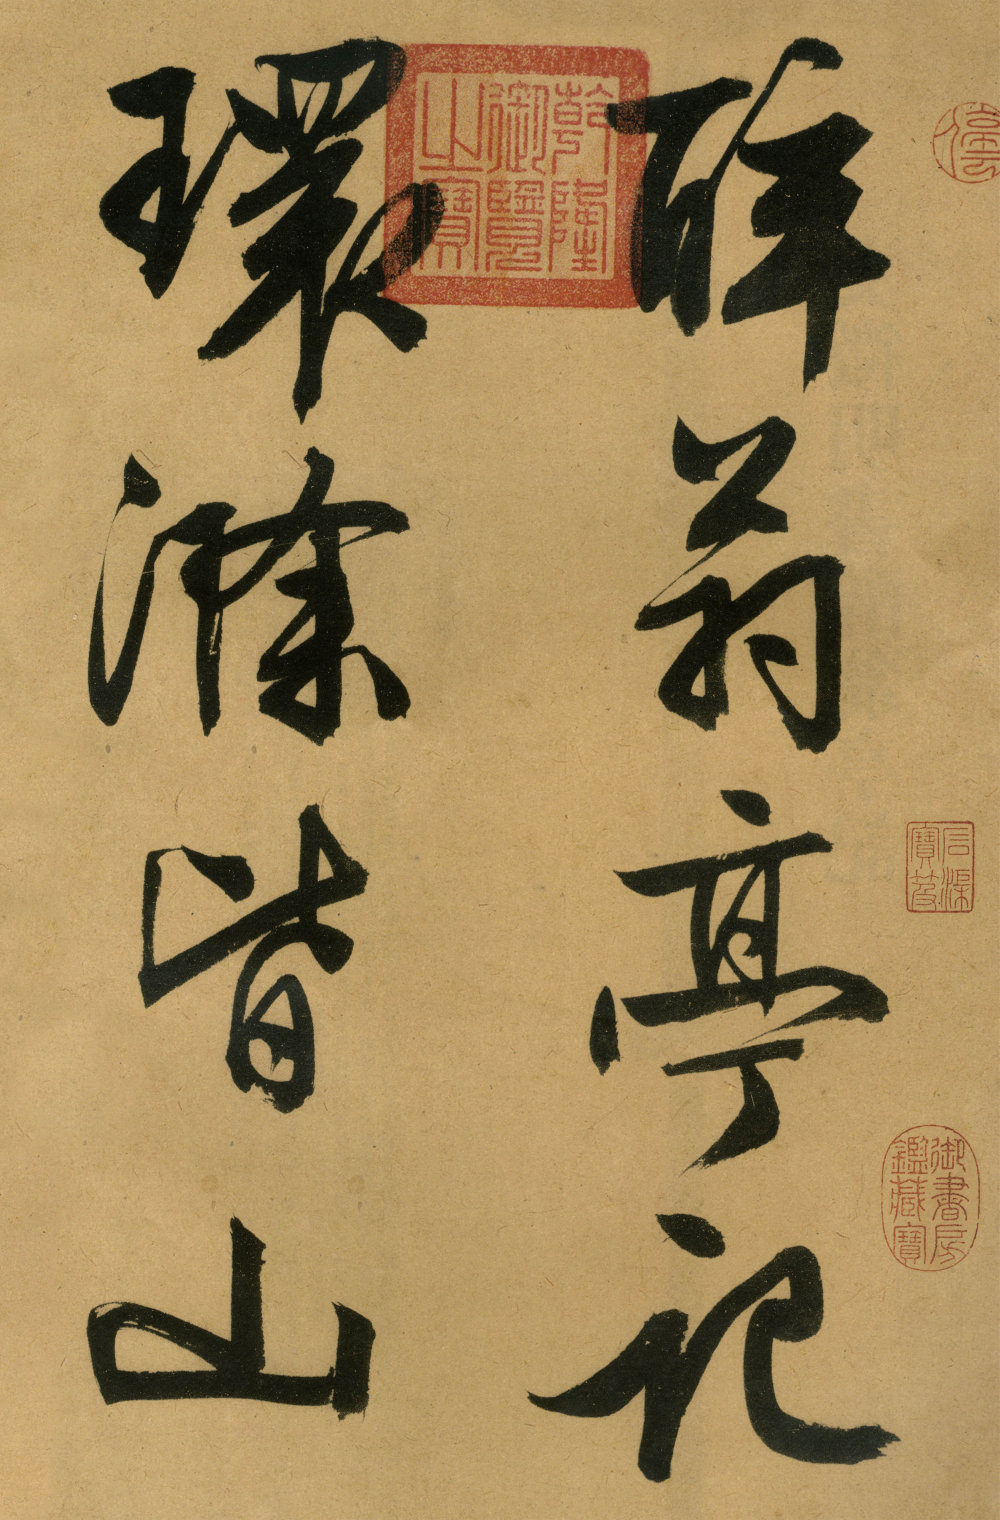 醉翁亭記
環滁皆山
乾隆御覽之寶
石渠寶笈
御書房鑑藏寶